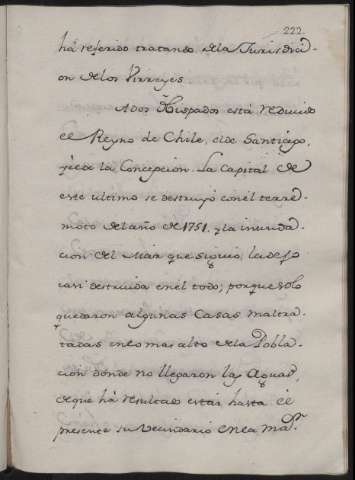 222
há referido tratando dela Jurisdici-
on delos Virreyes.
Ados Obispados está reducido
el Reyno de Chile, elde Santiago,
yelde la Concepcion. La Capital de
este ultimo se destruyó conel terre-
moto delaño de 1751, y la inunda-
cion del Mar que siguió, ladejó
casi destruida enel todo; porque solo
quedaron algunas Casas maltra-
tadas enlo mas alto dela Pobla-
cion donde no llegaron las Aguas,
deque há resultado estár hasta el
presente su Vecindario enla mayr.